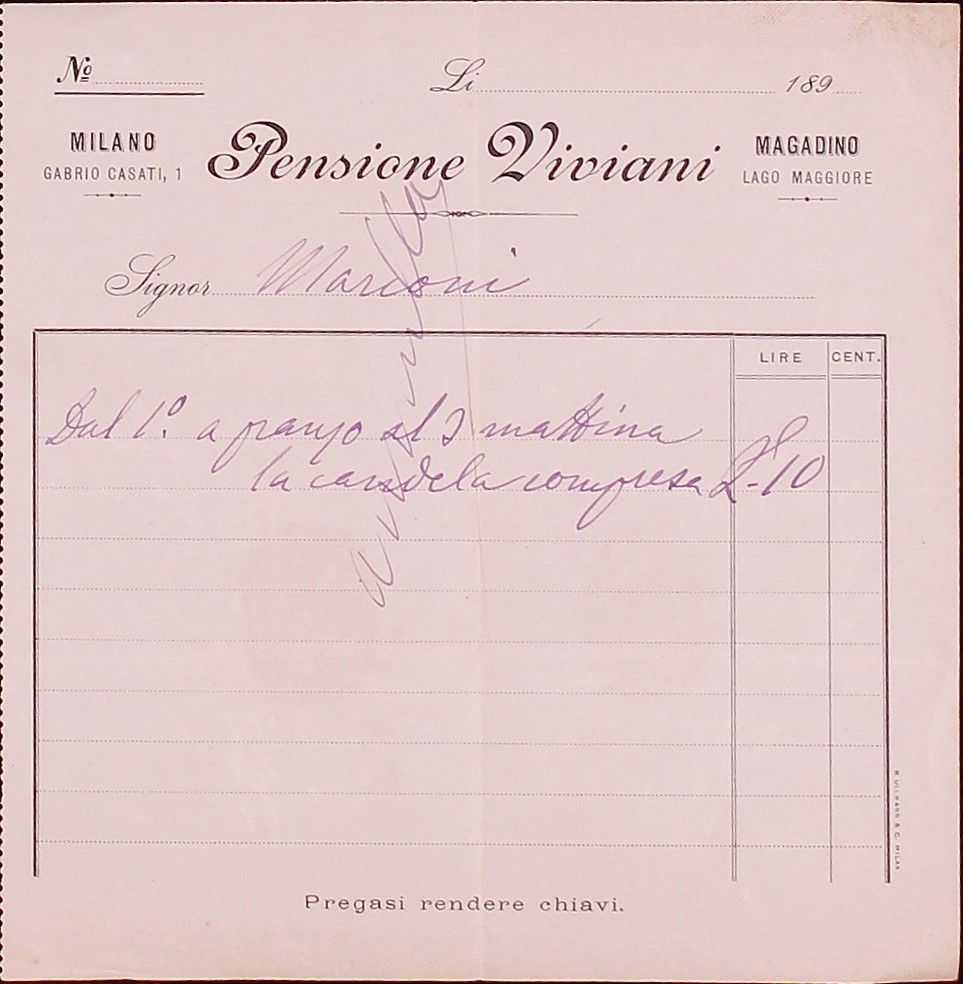 No
Li 189
MILANO
GABRIO CASATI, 1
Pensione Viviani
MAGADINO
LAGO MAGGIORE
Signor Marconi
LIRE CENT.
Dal 1º. a pranzo al 3 mattina
la candela compresa £-10
annulla
Pregasi rendere chiavi.